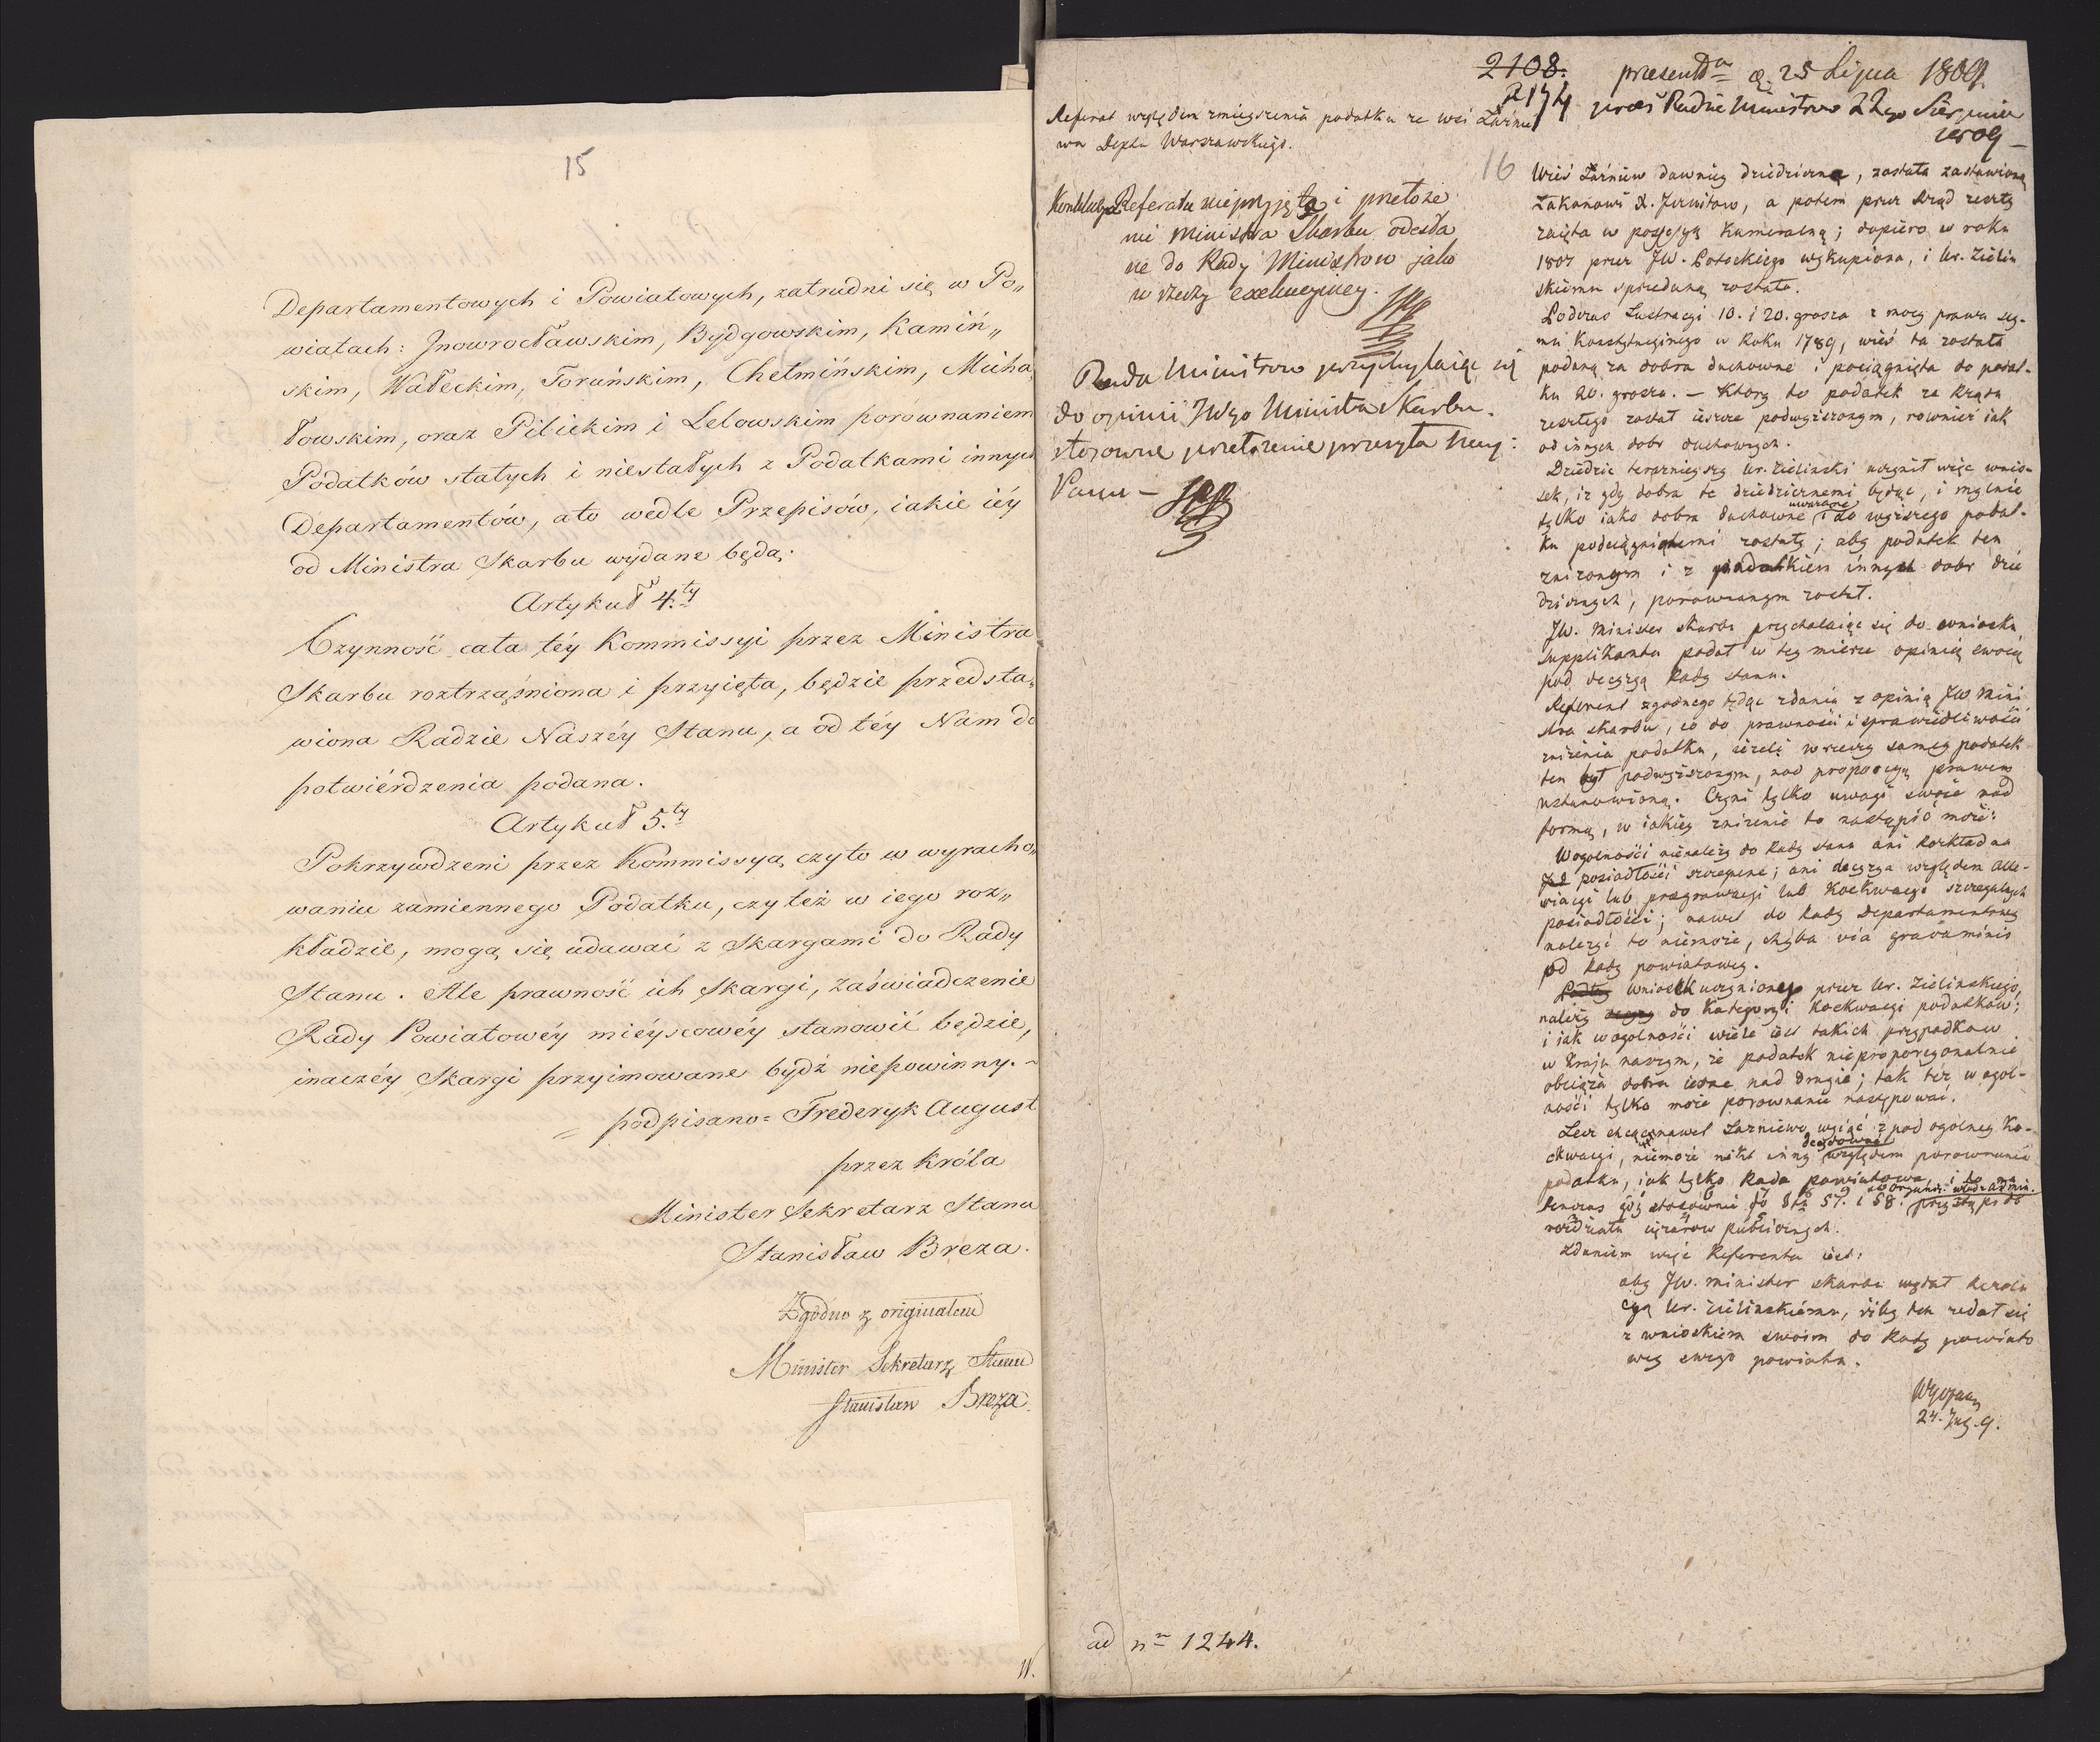 15
Departamentowych i Powiatowych, zatrudni się w Po„
wiatach: Jnowrocławskim, Bydgowskim, Kamiń„
skim, Wałeckim, Toruńskim, Chełmińskim, Micha„
łowskim, oraz Pilickim i Lelowskim porównaniem
Podatków stałych i niestałych z Podatkami innych
Departamentów, a to wedle Przepisów, iakie iéy
od Ministra Skarbu wydane będą.
Artykuł 4.ty
Czynność cała téy Kommissyi przez Ministra
Skarbu roztrząśniona i przyięta, będzie przedsta„
wiona Radzie Naszéy Stanu, a od téy Nam do
potwiérdzenia podana.
Artykuł 5.ty
Pokrzywdzeni przez Kommissyą, czyto w wyracho„
waniu zamiennego Podatku, czy też w iego roz„
kładzie, mogą się udawać z Skargami do Rady
Stanu. Ale prawność ich Skargi, zaświadczenie
Rady Powiatowéy mieyscowéy stanowić będzie,
inaczéy Skargi przyimowane bydź niepowinny. –
podpisano = Frederyk August
przez Króla
Minister Sekretarz Stanu
Stanisław Breza.
Zgodno z originałem
Minister Sekretarz Stanu
Stanisław Breza.
2108.
2174
presentᵈᵘ d. 25 Lipca 1809.
przez Radzie Ministrow 22go Sierpnia
1809 –
Referat względem zmieyszenia podatku ze wsi Zarnie
wa Deptu Warszawskiego.
Konkluzya Referatu nieprzyjęta i przełoże
nie Ministra Skarbu odesła
ne do Rady Ministrow jako
w rzeczy exekucyiney.
Rada Ministrow przychylaiąc się
do opinii JWgo Ministra Skarbu
stosowne przełożenie przesyła Nay:
Panu –
ad nrm 1244.
16
Wieś Zarniew dawniey dziedziczna, została zastawioną
Zakonowi X. Jezuitow, a potem przez Rząd zeszły
zaięta w possessyą Kameralną; dopiero w roku
1807 przez JW. Potockiego wykupiona, i Ur. Zieliń
skiemu sprzedaną została.
Podczas Lustracyi 10. i 20. grosza z mocy prawa sey-
mu Konstytucyinego w Roku 1789, wieś ta została
podaną za dobra duchowne i pociągnięta do podat-
ku 20. grosza. – Ktory to podatek za Rządu
zeszłego został ieszcze podwyższonym, rownież iak
od innych dobr duchownych.
Dziedzic teraznieyszy Ur. Zielinski uczynił więc wnio-
sek, iż gdy dobra te dziedzicznemi będąc, i mylnie
tylko iako dobra duchowne uważane i do wyższego podat-
ku podciągnionemi zostały; aby podatek ten
znizonym i z podatkiem innych dobr dzie
dzicznych, porownanym został.
JW. Minister Skarbu przychylaiąc się do wniosku
supplikanta podał w tey mierze opinią swoią
pod decyzyą Rady Stanu.
Referent zgodnego będąc zdania z opinią JW Mini
stra Skarbu, co do prawności i sprawiedliwości
zniżenia podatku, ieżeli w rzeczy samey podatek
ten był podwyższonym, nad proporcyą prawem
ustanowioną. Czyni tylko uwagi swoie nad
formą, w iakiey zniżenie to nastąpić może:
W ogolności nienależy do Rady Stanu ani rozkład na
posiadłości szczegulne; ani decyzya względem alle-
wiacyi lub pregrawacyi lub Koekwacyi szczegulnych
posiadłości; nawet do Rady Departamentowey
należyć to niemoże, chyba via gravaminis
od Rady powiatowey.
Wniosek uczyniony przez Ur. Zielinskiego,
należy do Kategoryi Koekwacyi podatkow;
i iak w ogolności wiele iest takich przypadkow
w Kraju naszym, że podatek nieproporcyonalnie
obciąża dobra iedne nad drugie; tak też w ogol-
ności tylko może porownanie następować.
Lecz chcąc nawet Zarniewo wyiąć z pod ogolney Ko-
ekwacyi, niemoże nikt inny decydować względem porownania
podatku, iak tylko Rada powiatowa, i to na
tenczas gdy stosownie do § 57. i 58. przystąpi do
rozdziału cięzarow publicznych.
Zdaniem więc Referenta iest:
aby JW. Minister Skarbu wydał Rezolu
cyą Ur. Zielinskiemu, żeby ten udał się
z wnioskiem swoim do Rady powiato
wey swego powiatu.
24. July. 9.